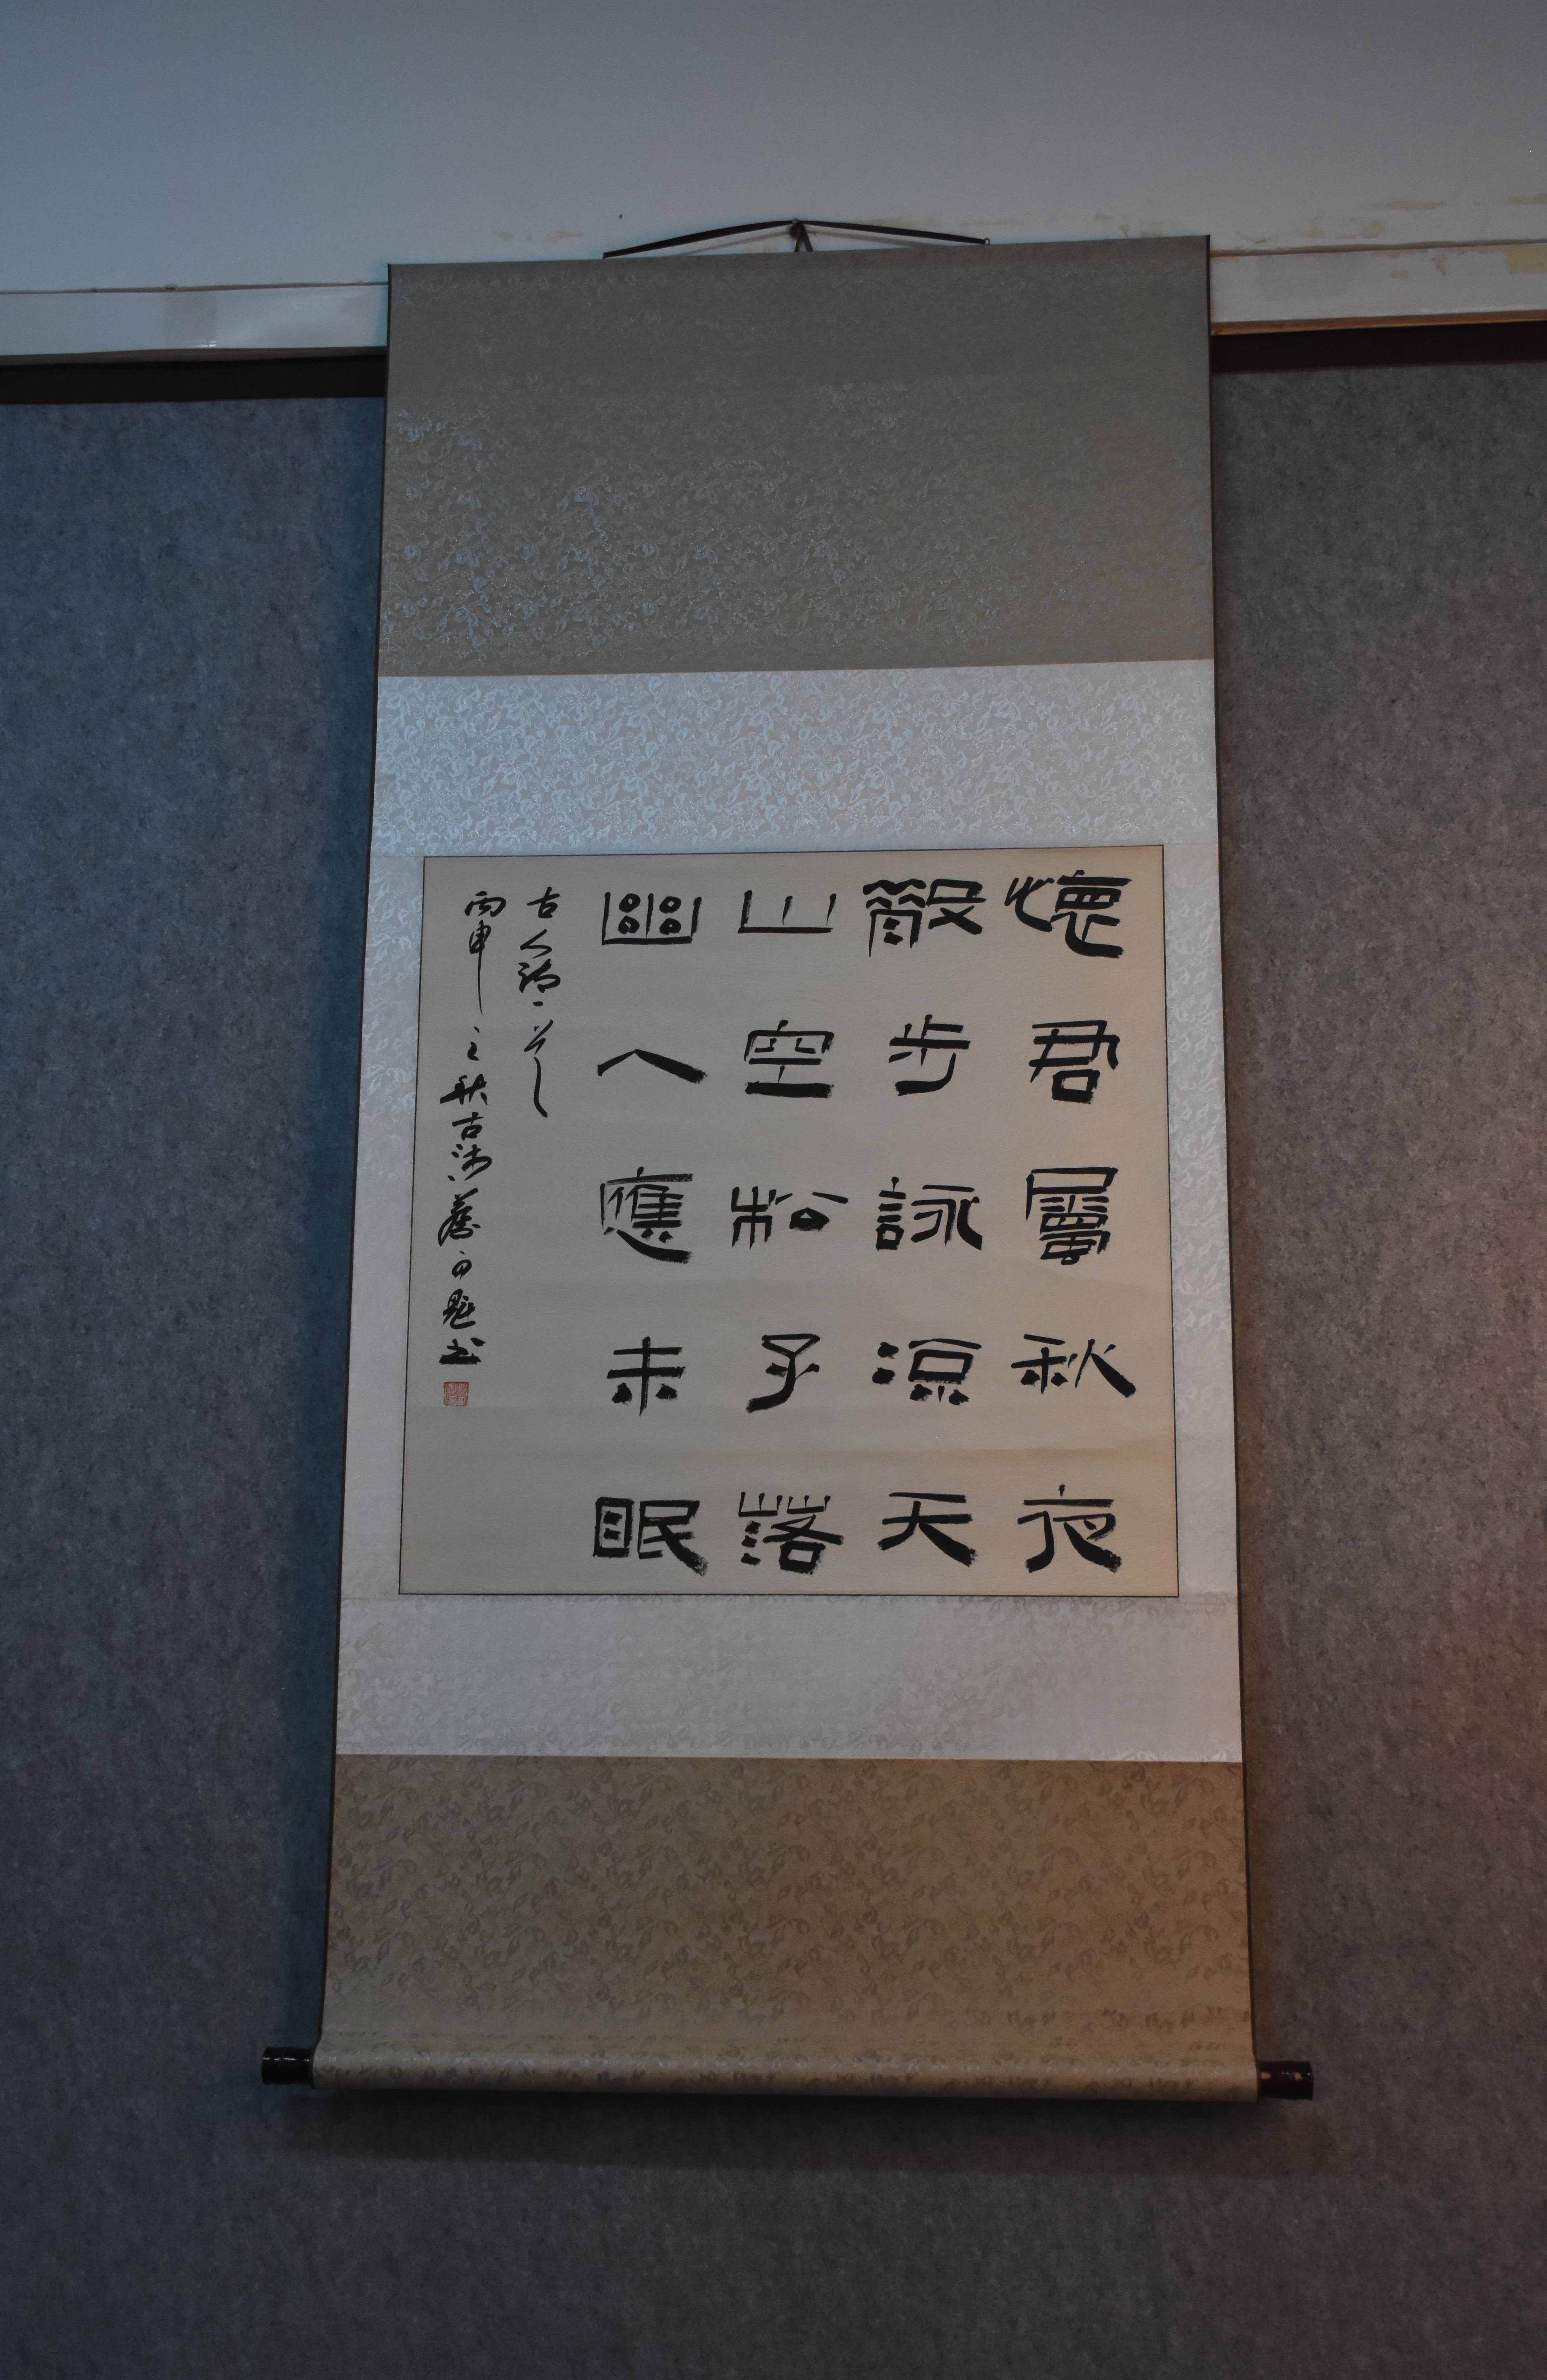 懷君屬秋夜
散步詠涼天
山空松子落
幽人應未眠
古人詩一首
丙申之秋古沛
書